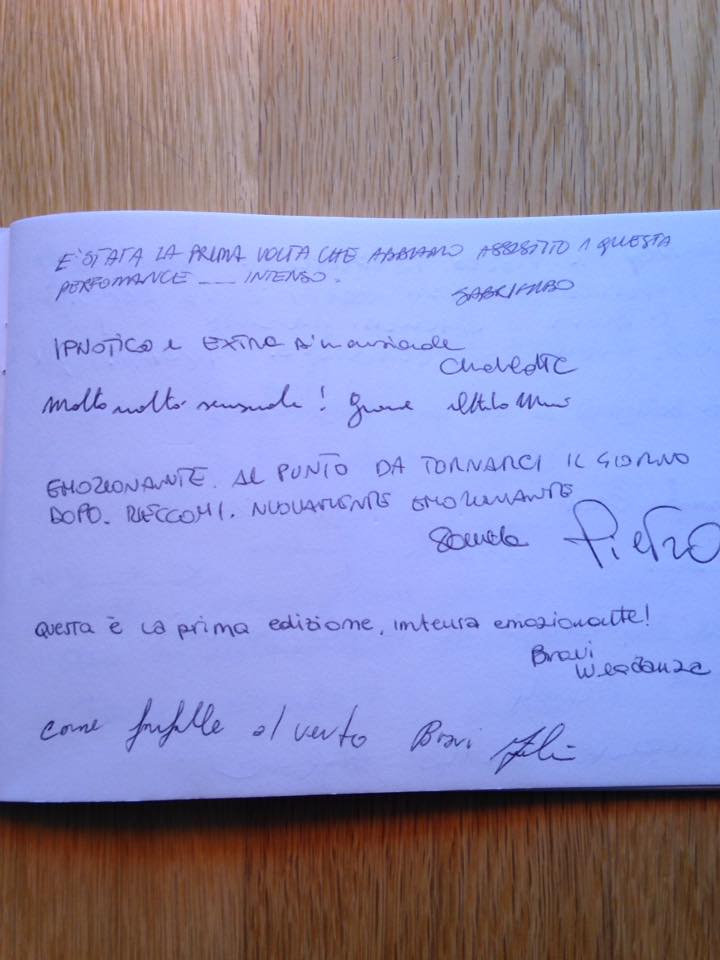 E' STATA LA PRIMA VOLTA CHE ABBIAMO ASSISTITO A QUESTA
PERFOMANCE ___ INTENSO.
IPNOTICO e EXTRA
Molto molto sensuale!
EMOZIONANTE. AL PUNTO DA TORNARCI IL GIORNO
DOPO. RIECCOMI. NUOVAMENTE EMOZIONANTE
Pietro
questa è la prima edizione, intensa emozionante!
Bravi
come farfalle al vento Bravi